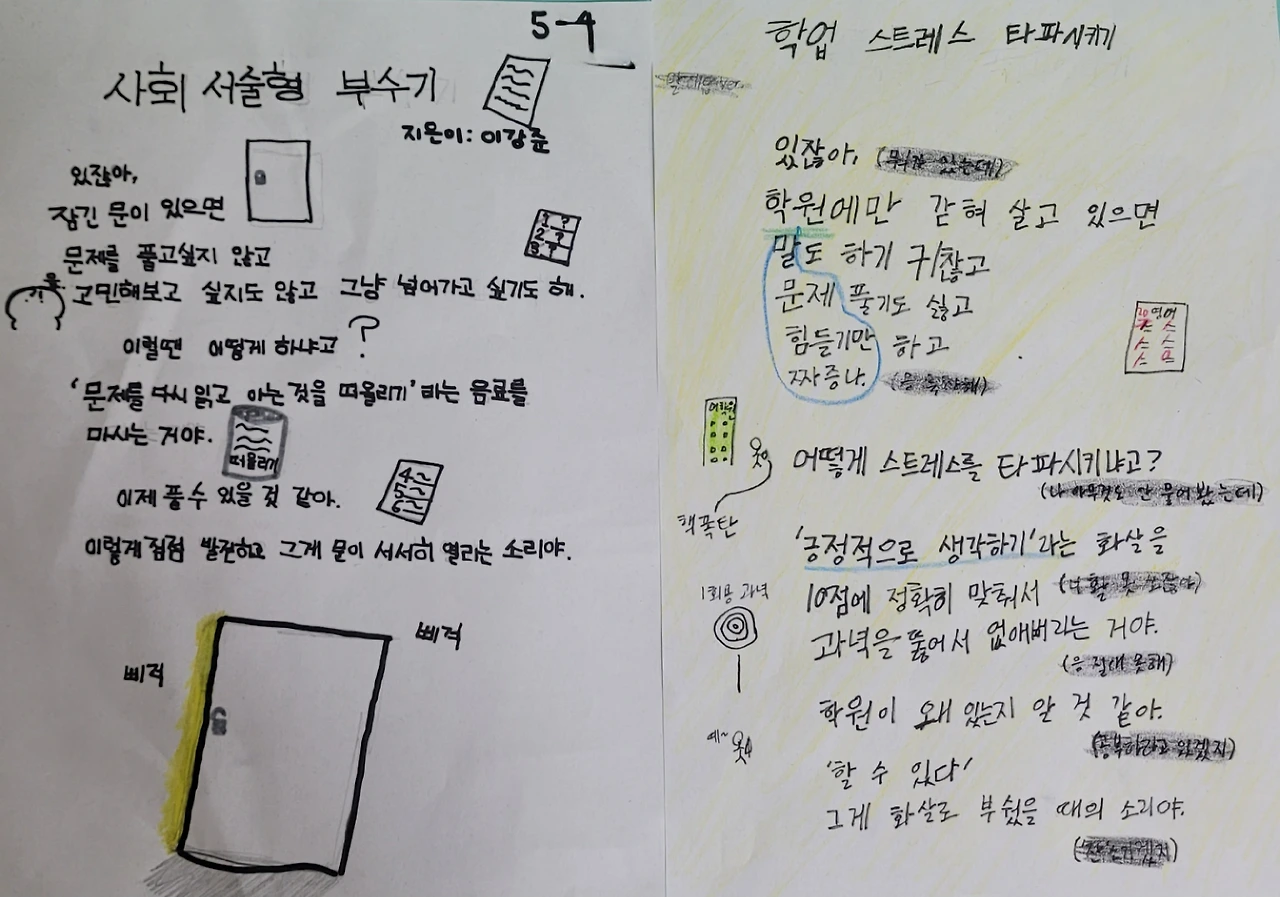 5-4
사회 서술형 부수기
지은이: 이강준
있잖아,
잠긴 문이 있으면
문제를 풀고싶지 않고
고민해보고 싶지도 않고 그냥 넘어가고 싶기도 해.
이럴땐 어떻게 하냐고?
'문제를 다시 읽고 아는 것을 떠올리기'라는 음료를
마시는 거야.
떠올리기
이제 풀 수 있을 것 같아.
이렇게 점점 발전하고 그게 문이 서서히 열리는 소리야.
삐걱
삐걱
1. ?
2. ?
3. ?
4.
5.
6.
학업 스트레스 타파시키기
있잖아,
학원에만 갇혀 살고 있으면
말도 하기 귀찮고
문제 풀기도 싫고
힘들기만 하고
짜증나.
영어
어떻게 스트레스를 타파시키냐고?
(나 아무것도 안 물어봤는데)
책폭탄
'긍정적으로 생각하기'라는 화살을
10점에 정확히 맞춰서 (나 활 못 쏘잖아)
과녁을 뚫어서 없애버리는 거야.
(응 절대 못해)
1회용 과녁
학원이 왜 있는지 알 것 같아.
(공부하라고 있겠지)
예~
'할 수 있다'
그게 화살로 부쉈을 때의 소리야.